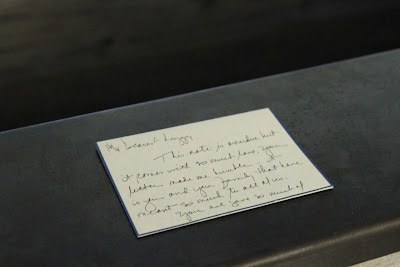 My Dearest
This note is overdue but
it comes with so much love. Your
letter made me humble. It
is you and your family that have
meant so much to all of us.
You out gave so much of